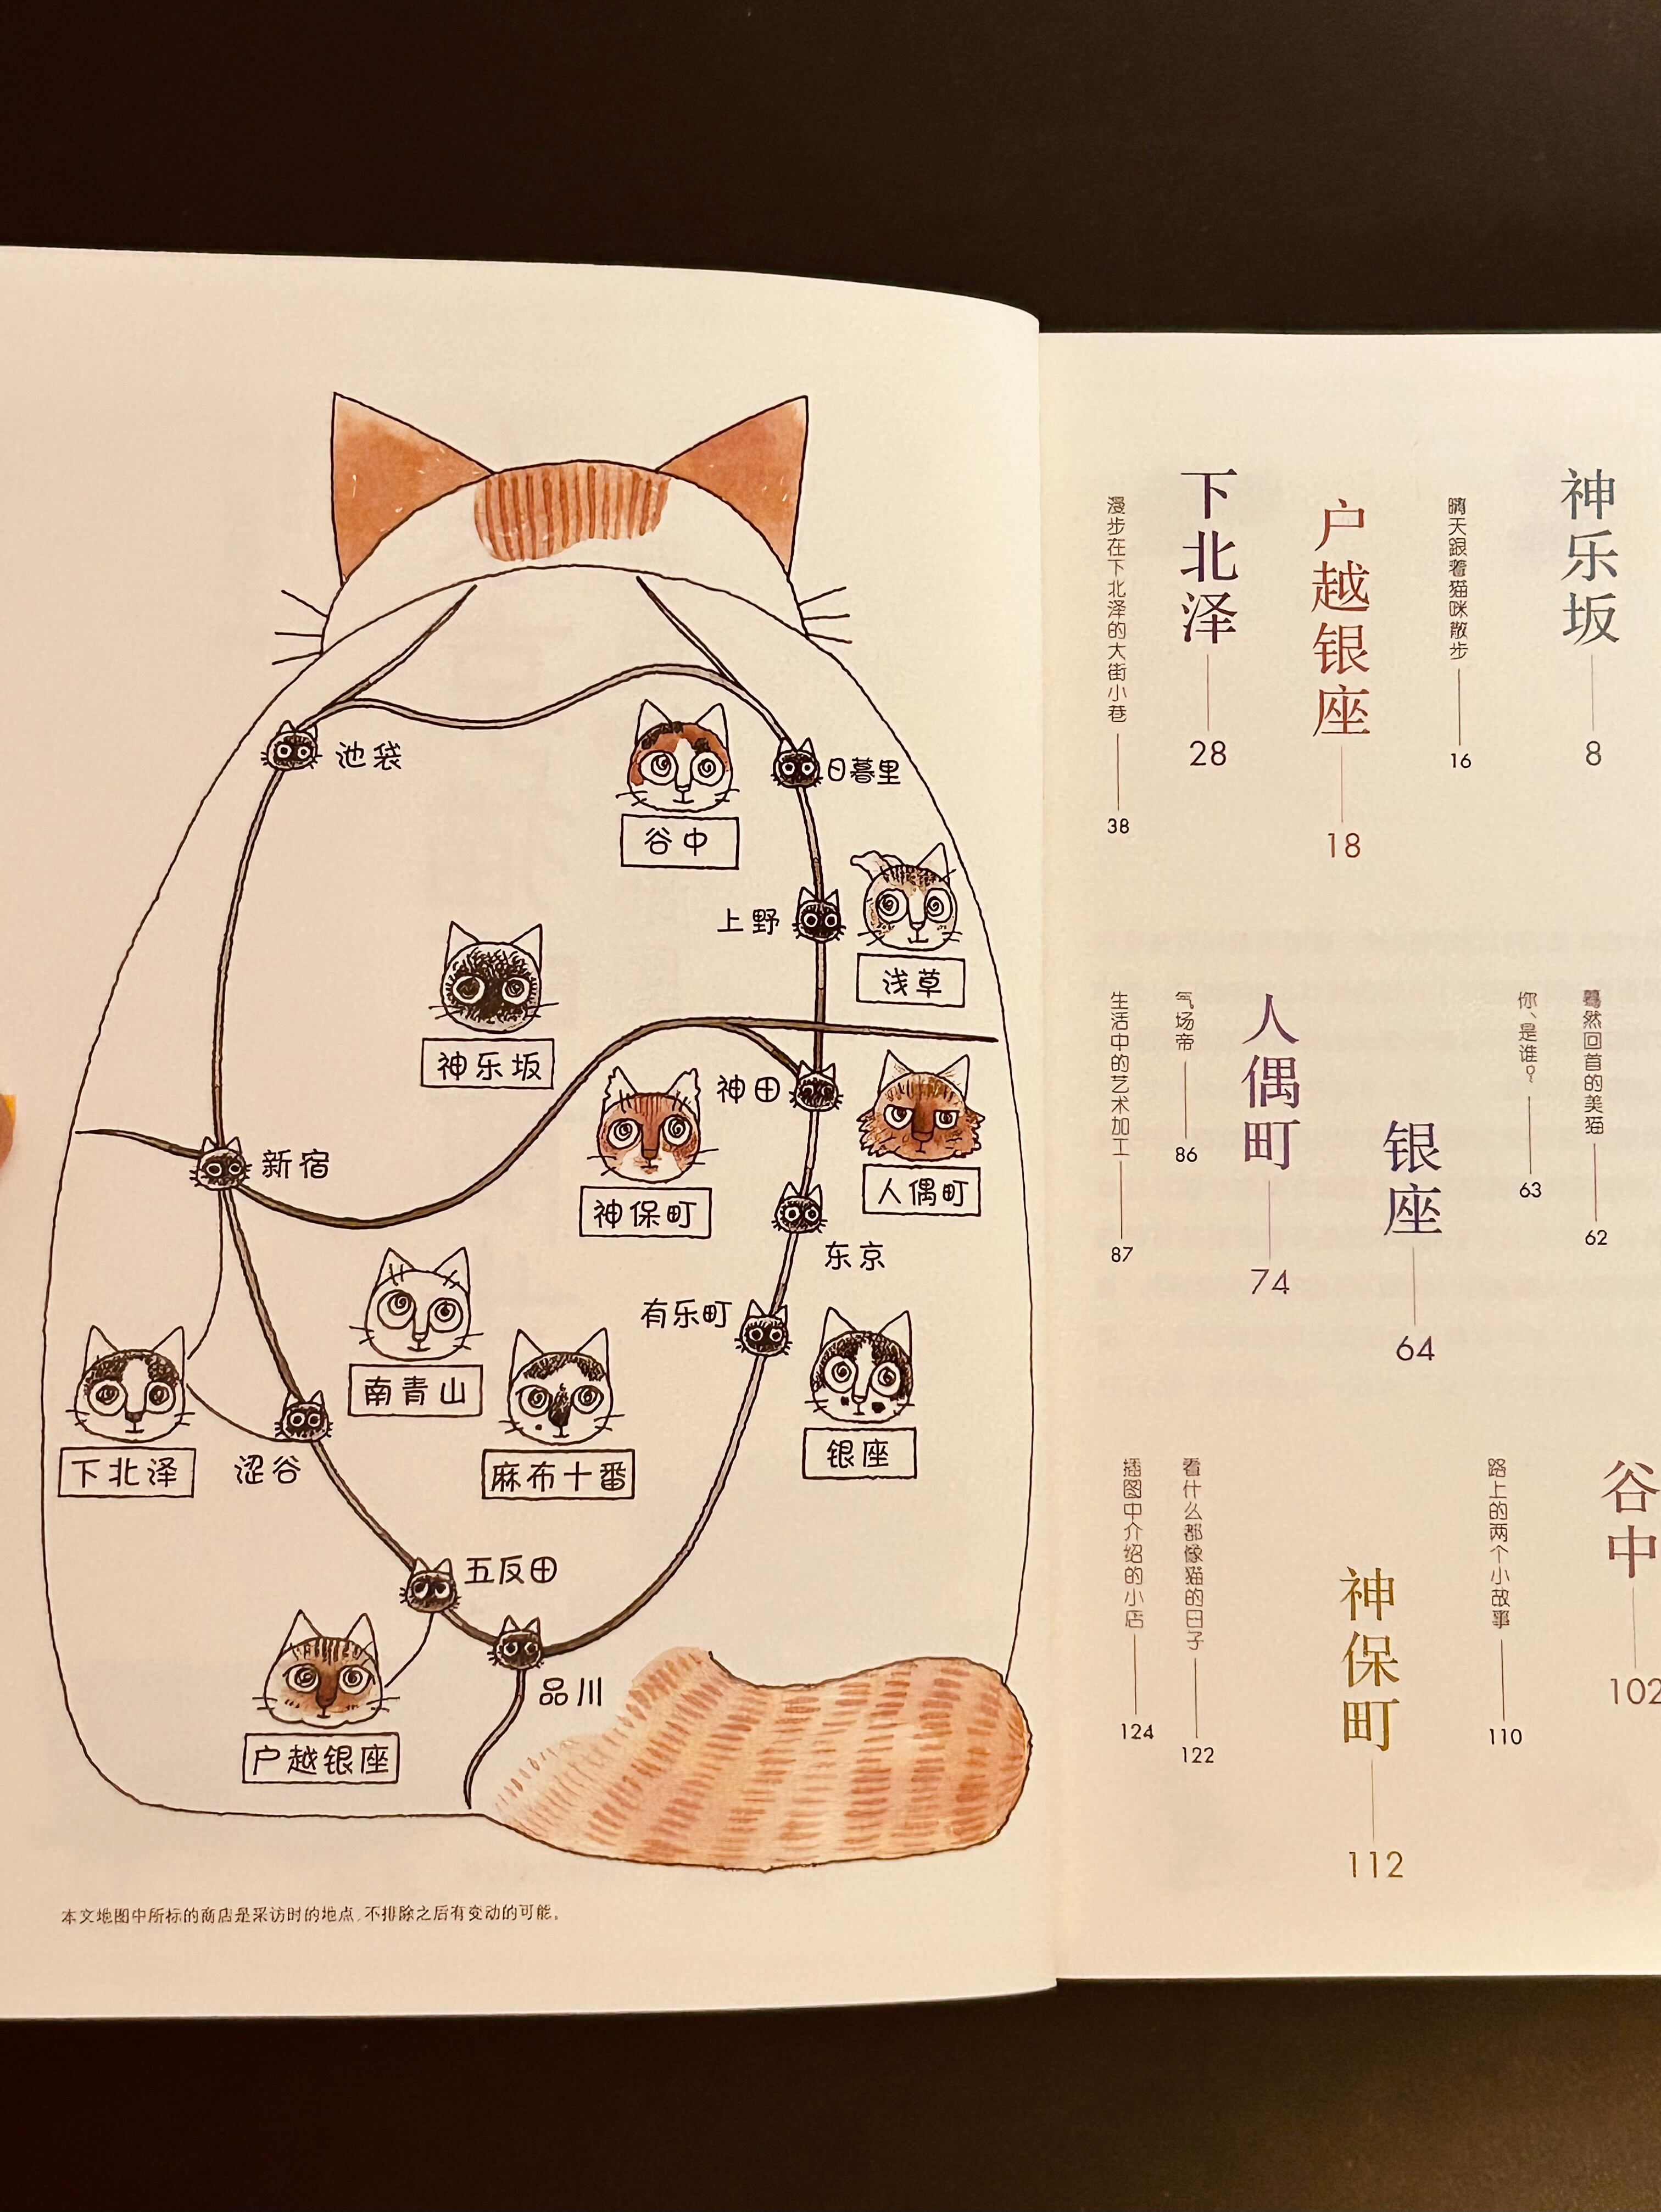 池袋
日暮里
谷中
上野
浅草
神乐坂
神田
新宿
神保町
人偶町
东京
有乐町
南青山
下北泽
涩谷
麻布十番
银座
五反田
品川
户越银座
本文地图中所标的商店是采访时的地点,不排除之后有变动的可能。
神乐坂
8
晴天跟着猫咪散步
16
户越银座
18
下北泽
28
漫步在下北泽的大街小巷
38
蓦然回首的美猫
62
你、是谁?
63
银座
64
人偶町
74
气场帝
86
生活中的艺术加工
87
谷中
102
路上的两个小故事
110
神保町
112
看什么都像猫的日子
122
插图中介绍的小店
124